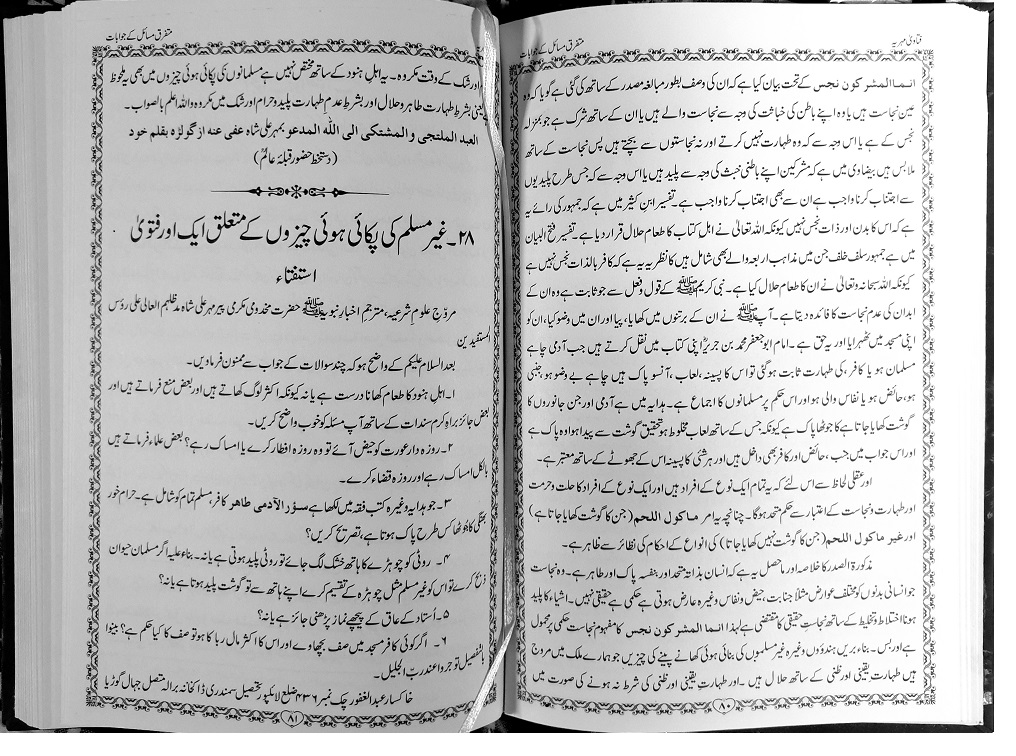 فتاویٰ مہریہ
متفرق مسائل کے جوابات
انما المشرکون نجس کے تحت بیان کیا ہے کہ ان کی وصف بطور مبالغہ مصدر کے ساتھ کی گئی ہے گویا کہ وہ
عین نجاست ہیں یا وہ اپنے باطن کی خباثت کی وجہ سے نجاست والے ہیں یا ان کے ساتھ شرک ہے جو بمنزلہ
نجس کے ہے یا اس وجہ سے کہ وہ طہارت نہیں کرتے اور نہ نجاستوں سے بچتے ہیں پس نجاست کے ساتھ
ملابس ہیں بیضاوی میں ہے کہ مشرکین اپنے باطنی خبث کی وجہ سے پلید ہیں یا اس وجہ سے کہ جس طرح پلیدیوں
سے اجتناب کرنا واجب ہے ان سے بھی اجتناب کرنا واجب ہے۔ تفسیر ابن کثیر میں ہے کہ جمہور کی رائے یہ
ہے کہ اس کا بدن اور ذات نجس نہیں کیونکہ اللہ تعالیٰ نے اہل کتاب کا طعام حلال قرار دیا ہے۔ تفسیر فتح البیان
میں ہے جمہور سلف خلف جن میں مذاہب اربعہ والے بھی شامل ہیں کا نظریہ یہ ہے کہ کافر بالذات نجس نہیں ہے
کیونکہ اللہ سبحانہ وتعالیٰ نے ان کا طعام حلال کیا ہے۔ نبی کریم ﷺ کے قول و فعل سے جو ثابت ہے وہ ان کے
ابدان کی عدم نجاست کا فائدہ دیتا ہے۔ آپ ﷺ نے ان کے برتنوں میں کھایا، پیا اور ان میں وضو کیا، ان کو
اپنی مسجد میں ٹھہرایا اور یہ حق ہے۔ امام ابو جعفر محمد بن جریر اپنی کتاب میں نقل کرتے ہیں جب آدمی چاہے
مسلمان ہو یا کافر، کی طہارت ثابت ہو گئی تو اس کا پسینہ، لعاب، آنسو پاک ہیں چاہے بے وضو ہو، جنبی
ہو، حائض ہو یا نفاس والی ہو اور اس حکم پر مسلمانوں کا اجماع ہے۔ ہدایہ میں ہے آدمی اور جن جانوروں کا
گوشت کھایا جاتا ہے کا جوٹھا پاک ہے کیونکہ جس کے ساتھ لعاب مخلوط ہو تحقیق گوشت سے پیدا ہوا وہ پاک ہے
اور اس جواب میں جنب، حائض اور کافر بھی داخل ہیں اور ہر شئی کا پسینہ اس کے جھوٹے کے ساتھ معتبر ہے۔
اور عقلی لحاظ سے اس لئے کہ یہ تمام ایک نوع کے افراد ہیں اور ایک نوع کے افراد کا حلت و حرمت
اور طہارت و نجاست کے اعتبار سے حکم متحد ہوگا۔ چنانچہ یہ امر ماکول اللحم (جن کا گوشت کھایا جاتا ہے)
اور غیر ماکول اللحم (جن کا گوشت نہیں کھایا جاتا) کی انواع کے احکام کی نظائر سے ظاہر ہے۔
مذکورۃ الصدر کا خلاصہ اور ماحصل یہ ہے کہ انسان بذاتہ متحد اور بنفسہ پاک اور طاہر ہے۔ وہ نجاست
جو انسانی بدنوں کو مختلف عوارض مثلاً جنابت، حیض و نفاس وغیرہ عارض ہوتی ہے حکمی ہے حقیقی نہیں۔ اشیاء کا پلید
ہونا اختلاط و تخلیط کے ساتھ نجاست حقیقی کا مقتضی ہے لہٰذا انما المشرکون نجس کا مفہوم نجاست حکمی پر محمول
ہے اور بس۔ بناء بریں ہندوؤں وغیرہ غیر مسلموں کی بنائی ہوئی کھانے پینے کی چیزیں جو ہمارے ملک میں مروج
ہیں طہارت یقینی اور ظنی کے ساتھ حلال ہیں۔ اور طہارت یقینی اور ظنی کی شرط نہ ہونے کی صورت میں
۸۰
متفرق مسائل کے جوابات
اور شک کے وقت مکروہ۔ یہ اہل ہنود کے ساتھ مختص نہیں ہے مسلمانوں کی پکائی ہوئی چیزوں میں بھی یہ ملحوظ
یعنی بشرط طہارت طاہر و حلال اور بشرط عدم طہارت پلید و حرام اور شک میں مکروہ واللہ اعلم بالصواب۔
العبد الملتجی و المشتکی الی اللہ المدعو بمہر علی شاہ عفی عنہ از گولڑہ بقلم خود
(دستخط حضور قبلۂ عالمؒ)
۲۸۔ غیر مسلم کی پکائی ہوئی چیزوں کے متعلق ایک اور فتویٰ
استفتاء
مروّج علوم شرعیہ، مترجم اخبار نبویہ ﷺ حضرت مخدومی مکرمی پیر مہر علی شاہ مدظلہم العالی علی رؤس
المستفیدین
بعد السلام علیکم کے واضح ہو کہ چند سوالات کے جواب سے ممنون فرمادیں۔
۱۔ اہل ہنود کا طعام کھانا درست ہے یا نہ کیونکہ اکثر لوگ کھاتے ہیں اور بعض منع فرماتے ہیں اور
بعض جائز براہ کرم سندات کے ساتھ آپ مسئلہ کو خوب واضح کریں۔
۲۔ روزہ دار عورت کو حیض آئے تو وہ روزہ افطار کرے یا امساک رہے؟ بعض علماء فرماتے ہیں
بالکل امساک رہے اور روزہ قضاء کرے۔
۳۔ جو ہدایہ وغیرہ کتب فقہ میں لکھا ہے سؤر الآدمی طاھر کافر، مسلم تمام کو شامل ہے۔ حرام خور
بھنگی کا جوٹھا کس طرح پاک ہوتا ہے، تصریح کریں؟
۴۔ روٹی کو چوہڑے کا ہاتھ خشک لگ جائے تو روٹی پلید ہوتی ہے یا نہ۔ بناء علیہ اگر مسلمان حیوان
ذبح کرے تو اس کو غیر مسلم مثل چوہڑہ کے تقسیم کرے اپنے ہاتھ سے تو گوشت پلید ہوتا ہے یا نہ؟
۵۔ استاد کے عاق کے پیچھے نماز پڑھنی جائز ہے یا نہ؟
۶۔ اگر کوئی کافر مسجد میں صف بچھاوے اور اس کا اکثر مال ربا کا ہو تو صف کا کیا حکم ہے؟ بینوا
بالتفصیل توجروا عند ربّ الجلیل۔
خاکسار عبد الغفور چک نمبر ۴۳۶ ضلع لائلپور تحصیل سمندری ڈاکخانہ برالہ متصل جہال گوڑیا
۸۱